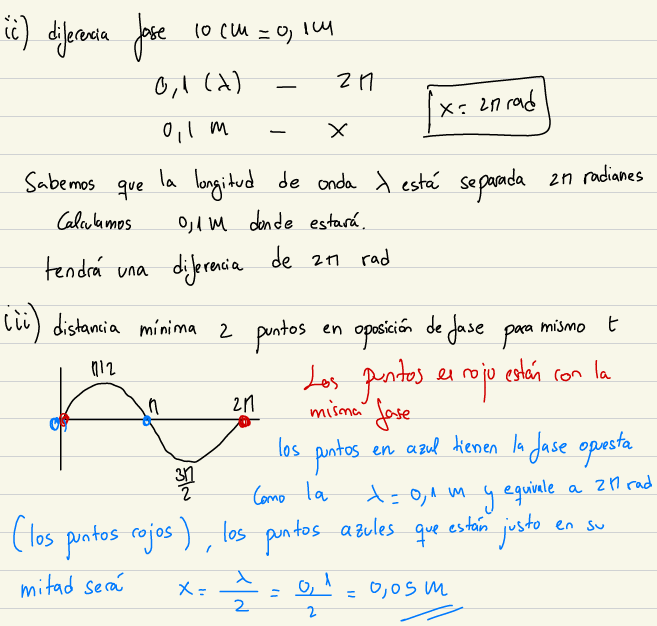 ii) diferencia fase 10 cm = 0,1m
0,1 (λ) — 2π
0,1 m — x
x = 2π rad
Sabemos que la longitud de onda λ está separada 2π radianes
Calculamos 0,1 m donde estará.
tendrá una diferencia de 2π rad
iii) distancia mínima 2 puntos en oposición de fase para mismo t
π/2
Los puntos en rojo están con la
misma fase
0 π 2π
3π/2
los puntos en azul tienen la fase opuesta
Como la λ = 0,1 m y equivale a 2π rad
(los puntos rojos), los puntos azules que están justo en su
mitad será x = λ/2 = 0,1/2 = 0,05 m